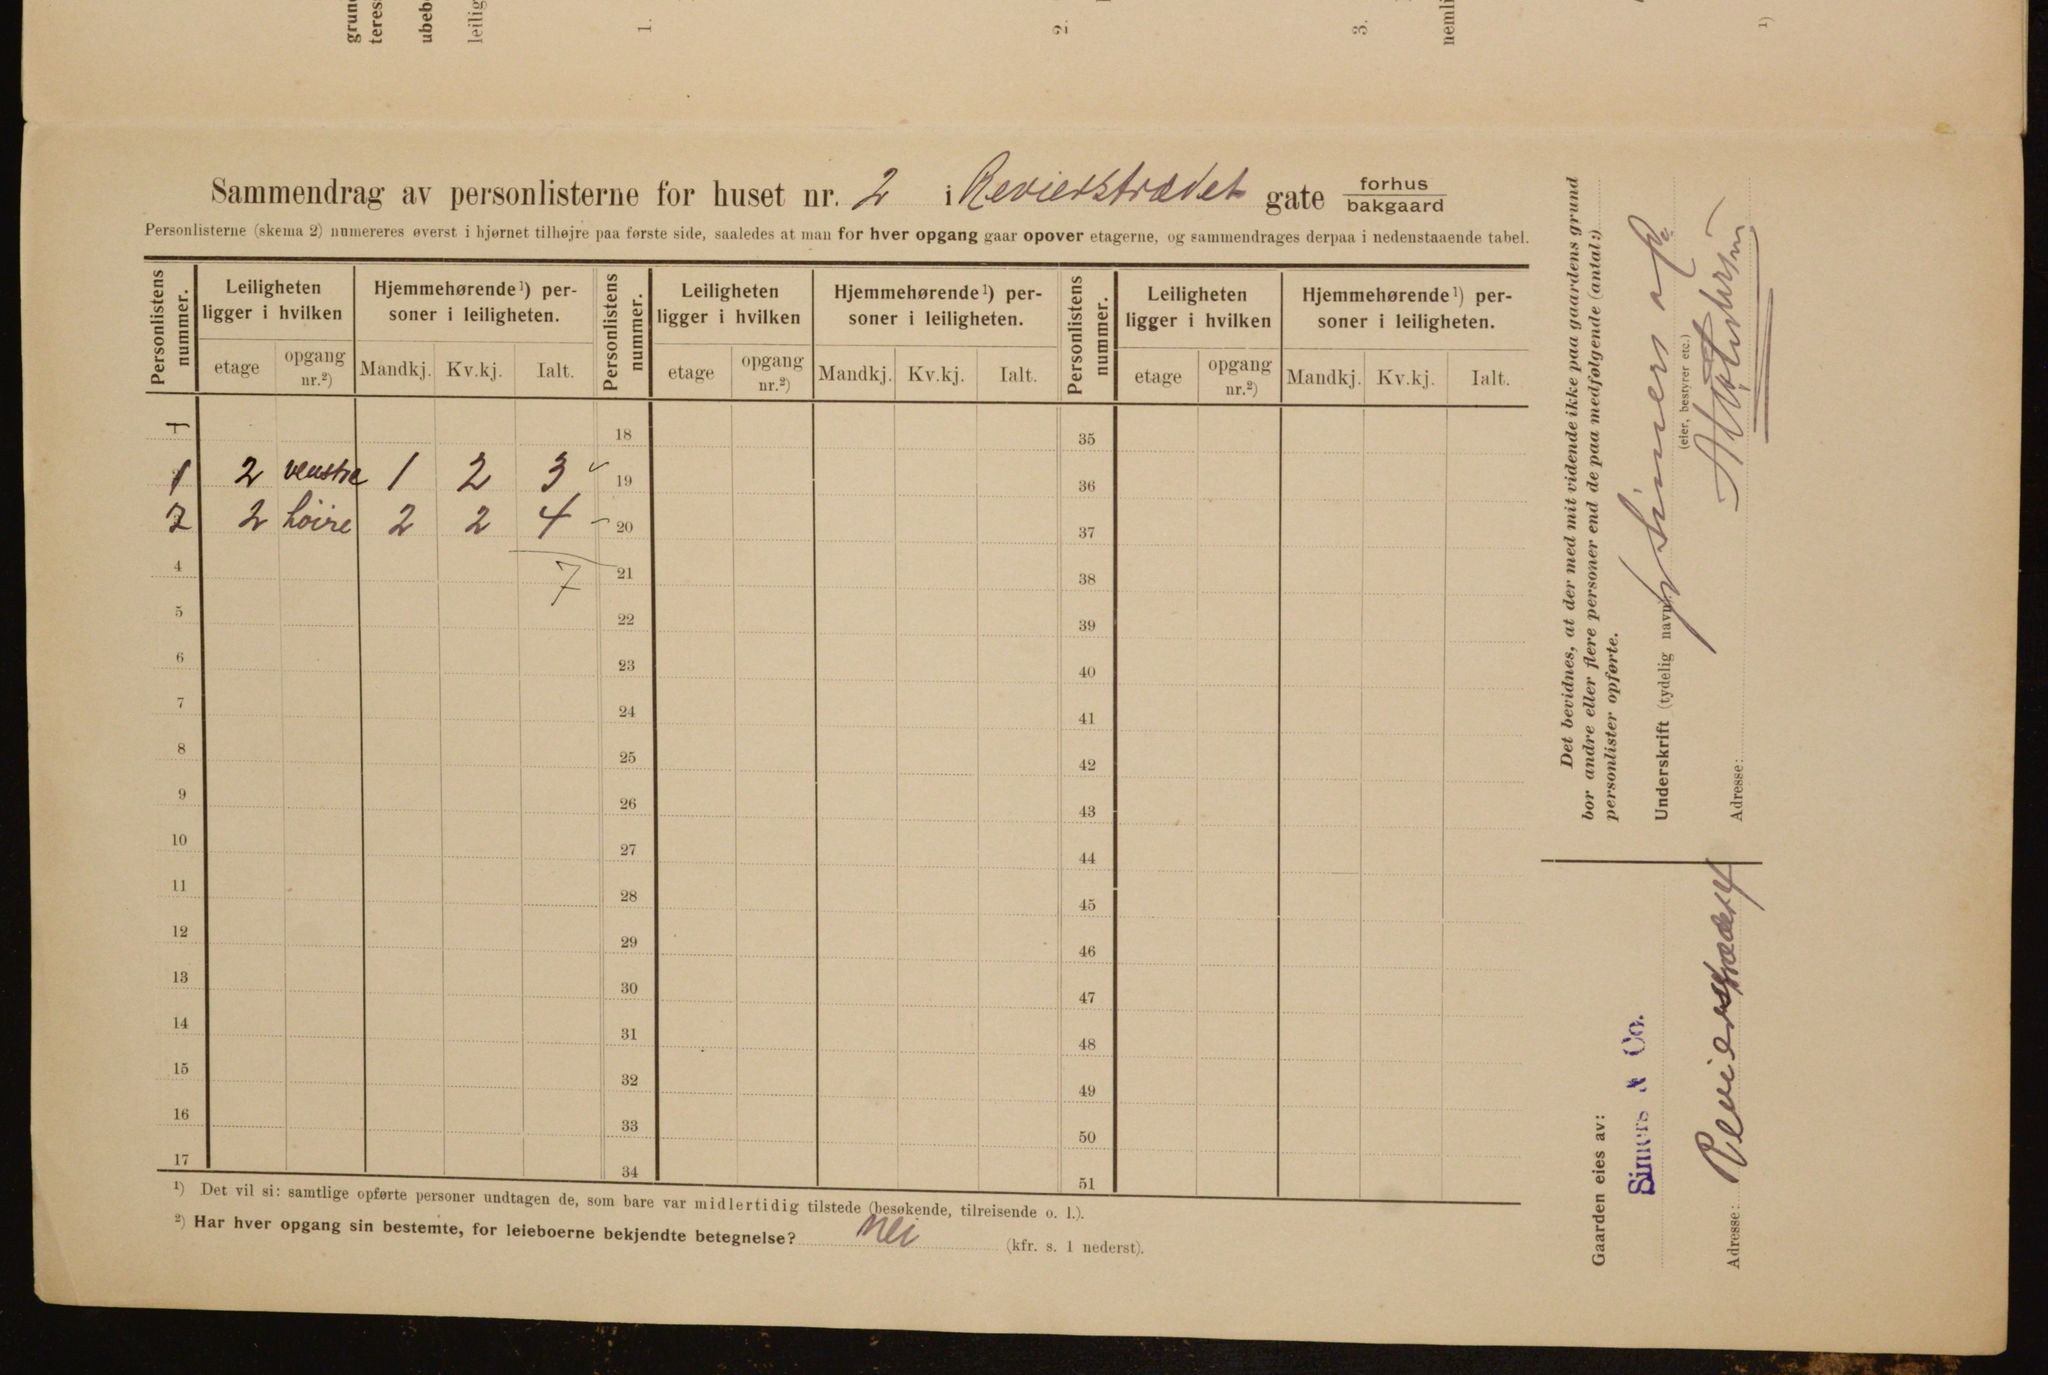 grund
teres
ubeb
leilig
1.
2.
3.
nemli
1)
Sammendrag av personlisterne for huset nr. 2 i Revierstrædet gate forhus bakgaard
Personlisterne (skema 2) numereres øverst i hjørnet tilhøjre paa første side, saaledes at man for hver opgang gaar opover etagerne, og sammendrages derpaa i nedenstaaende tabel.
Personlistens nummer. Leiligheten ligger i hvilken Hjemmehørende¹) personer i leiligheten. Personlistens nummer. Leiligheten ligger i hvilken Hjemmehørende¹) personer i leiligheten. Personlistens nummer. Leiligheten ligger i hvilken Hjemmehørende¹) personer i leiligheten.
etage opgang nr.²) Mandkj. Kv.kj. Ialt. etage opgang nr.²) Mandkj. Kv.kj. Ialt. etage opgang nr.²) Mandkj. Kv.kj. Ialt.
18 35
1 2 venstre 1 2 3 19 36
2 2 høire 2 2 4 20 37
4 7 21 38
5 22 39
6 23 40
7 24 41
8 25 42
9 26 43
10 27 44
11 28 45
12 29 46
13 30 47
14 31 48
15 32 49
16 33 50
17 34 51
¹) Det vil si: samtlige opførte personer undtagen de, som bare var midlertidig tilstede (besøkende, tilreisende o. l.).
²) Har hver opgang sin bestemte, for leieboerne bekjendte betegnelse? nei (kfr. s. 1 nederst).
Det bevidnes, at der med mit vidende ikke paa gaardens grund
bor andre eller flere personer end de paa medfølgende (antal:)
personlister opførte.
Underskrift (tydelig navn): Simers & Co.
(eier, bestyrer etc.)
Adresse:
Gaarden eies av:
Simers & Co.
Adresse: Revierstrædet 4